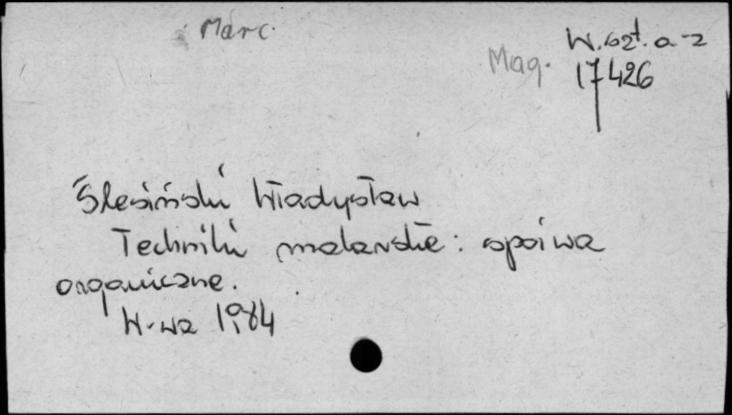 Marc.
W. szt. a-z
Mag. 17426
Ślesiński Władysław
Techniki malarskie: spoiwa
organiczne.
W-wa 1984